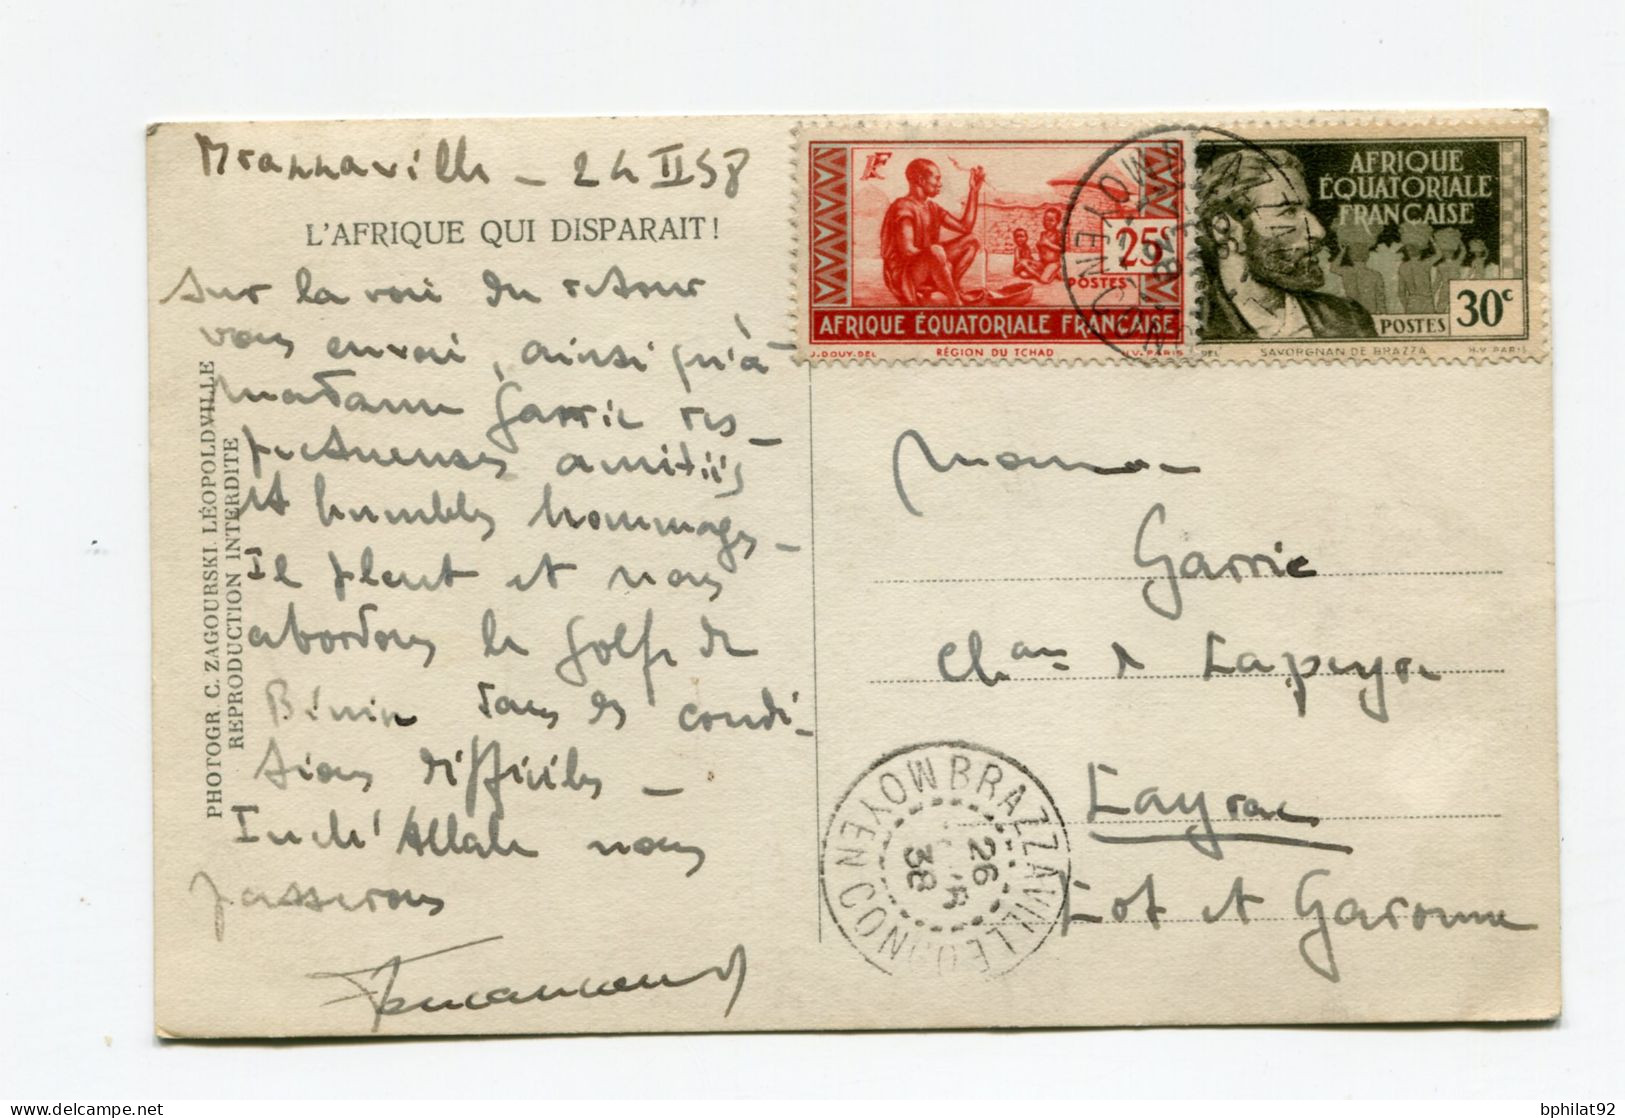 Brazzaville - 24 II 38
L'AFRIQUE QUI DISPARAIT!
Sur la voie du retour
vous envoie, ainsi qu'à
Madame Garric res-
pectueuses amitiés
et humbles hommages -
Il pleut et nous
abordons le golfe de
Bénin dans les condi-
tions difficiles -
Inch'Allah nous
passerons
PHOTOGR. C. ZAGOURSKI. LÉOPOLDVILLE
REPRODUCTION INTERDITE
F
25c
POSTES
AFRIQUE ÉQUATORIALE FRANÇAISE
J. DOUY-DEL RÉGION DU TCHAD H.V. PARIS
AFRIQUE
ÉQUATORIALE
FRANÇAISE
POSTES 30c
DEL SAVORGNAN DE BRAZZA H.V. PARIS
BRAZZAVILLE
MOYEN CONGO
Monsieur
Garric
Chau de Lapeyre
Layrac
Lot et Garonne
BRAZZAVILLE
MOYEN CONGO
26
38
bphilat92